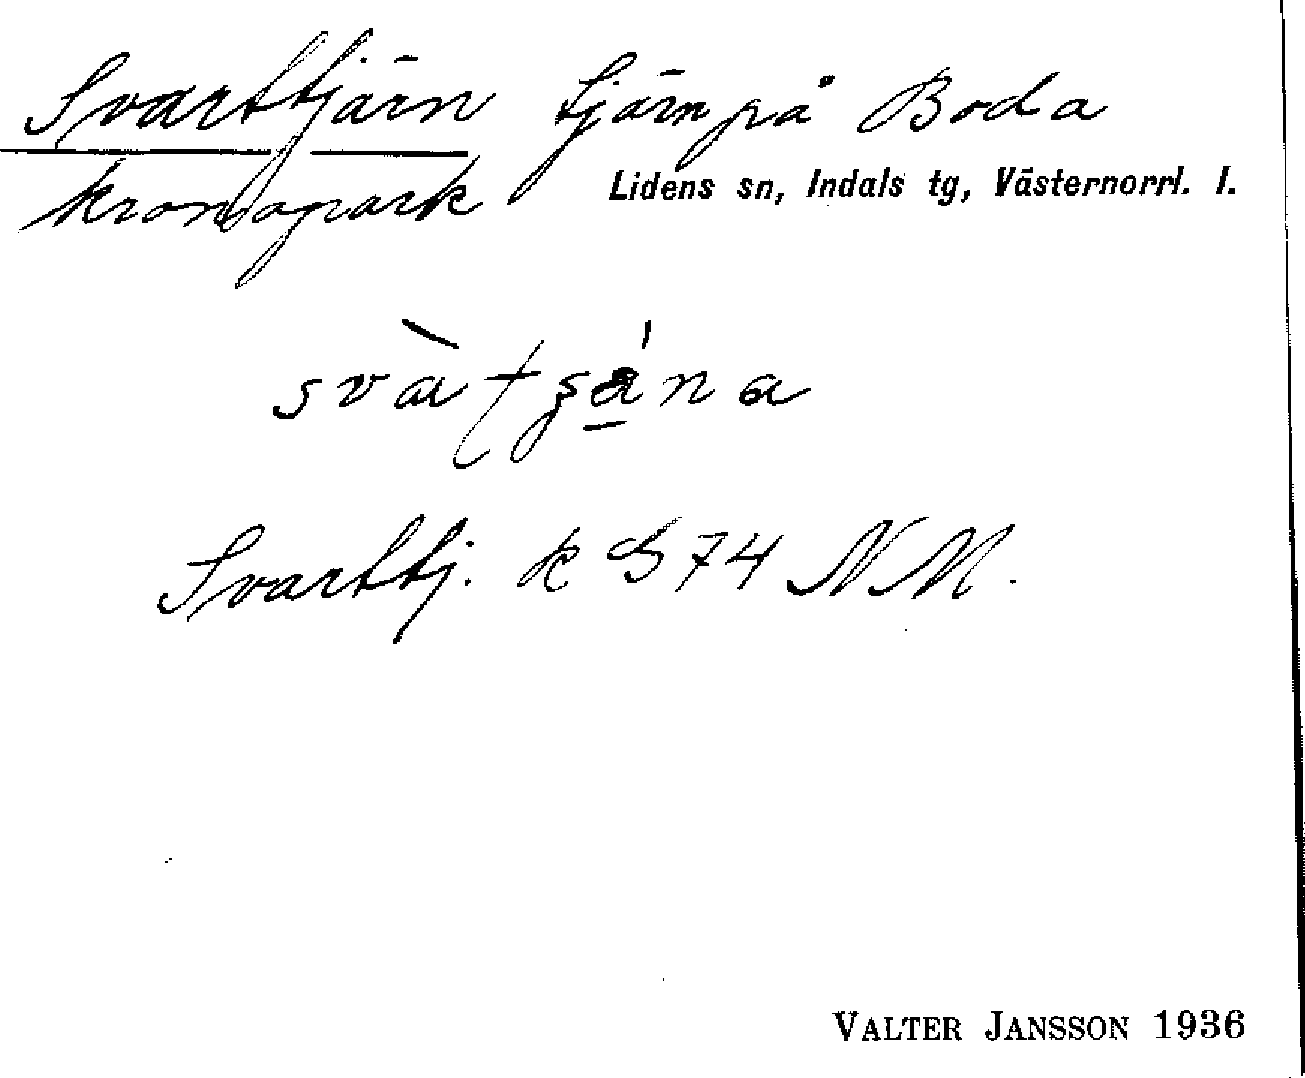 Svarttjärn tjärn på Boda
kronopark Lidens sn, Indals tg, Västernorrl. l.
svàtʂána
Svarttj. k S 74 NM.
VALTER JANSSON 1936